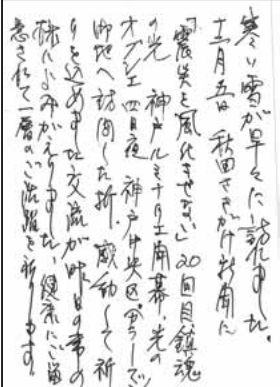 寒い雪が早々に訪れました。
十二月五日 秋田さきがけ新聞に
「震災を風化させない」20回目鎮魂
の光 神戸ルミナリエ開幕、光の
オブジェ 四日夜 神戸中央区
御地へ訪問した折、感動して祈
りを込めました交流が昨日の事の
様によみがえりました、健康にご留
意されて一層のご活躍を祈ります。